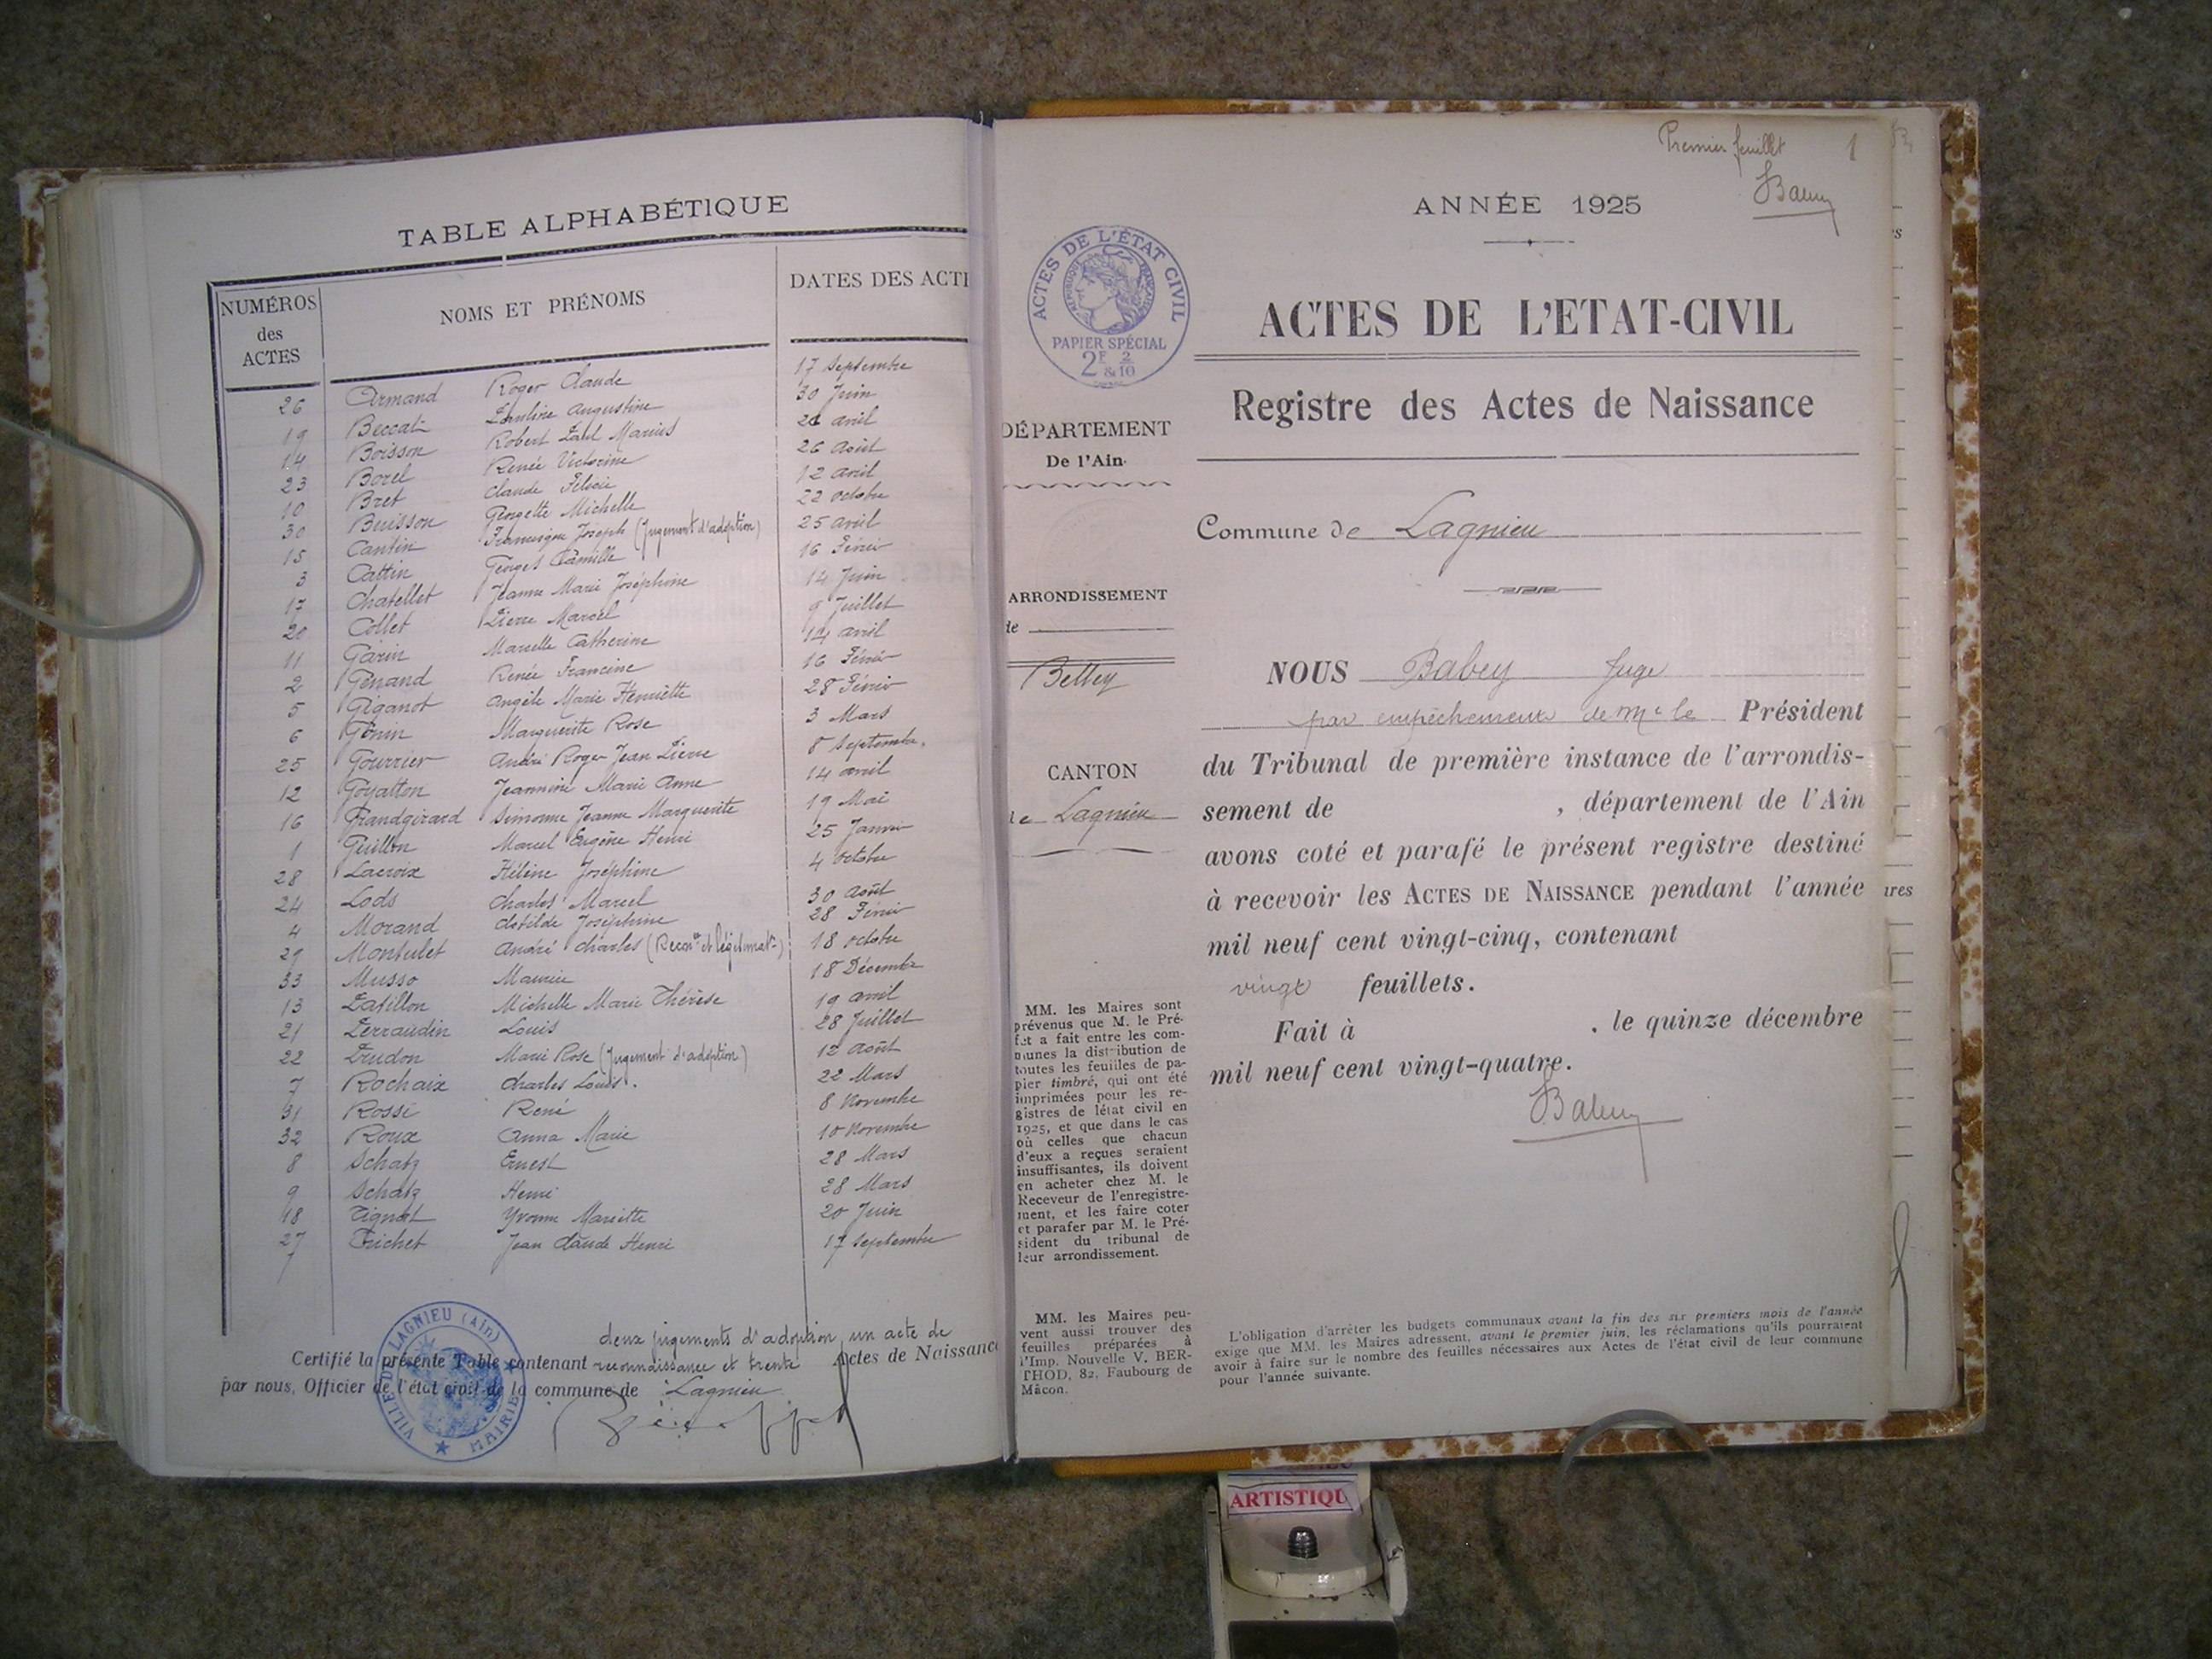 TABLE ALPHABÉTIQUE
NUMÉROS des ACTES
NOMS ET PRÉNOMS
DATES DES ACTE
26 Armand Roger Claude 17 Septembre
19 Beccat Augustine 30 Juin
14 Boisson Robert Marius 26 avril
23 Borel Renée Victorine 26 août
10 Bret Claude Félicie 12 avril
30 Buisson Georgette Michelle 22 octobre
15 Cantin Joseph (Jugement d'adoption) 25 avril
3 Cattin Georges Camille 16 Février
17 Chatellet Jeanne Marie Joséphine 14 Juin
20 Collet Pierre Marcel 9 Juillet
11 Garin Marcelle Catherine 14 avril
2 Génand Renée Francine 16 Février
5 Giganot Angèle Marie Henriette 28 Février
6 Génin Marguerite Rose 3 Mars
25 Gourrier André Roger Jean Pierre 8 Septembre.
12 Goyatton Jeannine Marie Anne 14 avril
16 Grandgirard Simonne Jeanne Marguerite 19 Mai
1 Guillon Marcel Eugène Henri 25 Janvier
28 Lacroix Hélène Joséphine 4 octobre
24 Lods Charles Marcel 30 août
4 Morand Clotilde Joséphine 28 Février
29 Montulet André Charles (Recon et légitimat) 18 octobre
33 Musso Maurice 18 Décembre
13 Patillon Michelle Marie Thérèse 19 avril
21 Perraudin Louis 28 Juillet
22 Prudon Marie Rose (Jugement d'adoption) 12 août
7 Rochaix Charles Louis. 22 Mars
31 Rossi René 8 Novembre
32 Roux Anna Marie 10 Novembre
8 Schatz Ernest 28 Mars
9 Schatz Henri 28 Mars
18 Tignat Yvonne Mariette 20 Juin
27 Trichet Jean Claude Henri 17 Septembre
deux jugements d'adoption, un acte de
Certifié la présente Table contenant reconnaissance et trente Actes de Naissance
par nous, Officier de l'état civil de la commune de Lagnieu
VILLE DE LAGNIEU (Ain)
MAIRIE
Premier feuillet 1
ANNÉE 1925
ACTES DE L'ÉTAT CIVIL
RÉPUBLIQUE FRANÇAISE
PAPIER SPÉCIAL
2F & 2/10
ACTES DE L'ETAT-CIVIL
Registre des Actes de Naissance
DÉPARTEMENT
De l'Ain
Commune de Lagnieu
ARRONDISSEMENT
de
Belley
CANTON
de Lagnieu
NOUS Babey Juge
par empêchement de Mr le Président
du Tribunal de première instance de l'arrondis-
sement de , département de l'Ain
avons coté et parafé le présent registre destiné
à recevoir les ACTES DE NAISSANCE pendant l'année
mil neuf cent vingt-cinq, contenant
vingt feuillets.
Fait à , le quinze décembre
mil neuf cent vingt-quatre.
MM. les Maires sont
prévenus que M. le Pré-
fet a fait entre les com-
munes la distribution de
toutes les feuilles de pa-
pier timbré, qui ont été
imprimées pour les re-
gistres de létat civil en
1925, et que dans le cas
où celles que chacun
d'eux a reçues seraient
insuffisantes, ils doivent
en acheter chez M. le
Receveur de l'enregistre-
ment, et les faire coter
et parafer par M. le Pré-
sident du tribunal de
leur arrondissement.
MM. les Maires peu-
vent aussi trouver des
feuilles préparées à
l'Imp. Nouvelle V. BER-
THOD, 82, Faubourg de
Mâcon.
L'obligation d'arrêter les budgets communaux avant la fin des six premiers mois de l'année
exige que MM. les Maires adressent, avant le premier juin, les réclamations qu'ils pourraient
avoir à faire sur le nombre des feuilles nécessaires aux Actes de l'état civil de leur commune
pour l'année suivante.
ires
ARTISTIQU